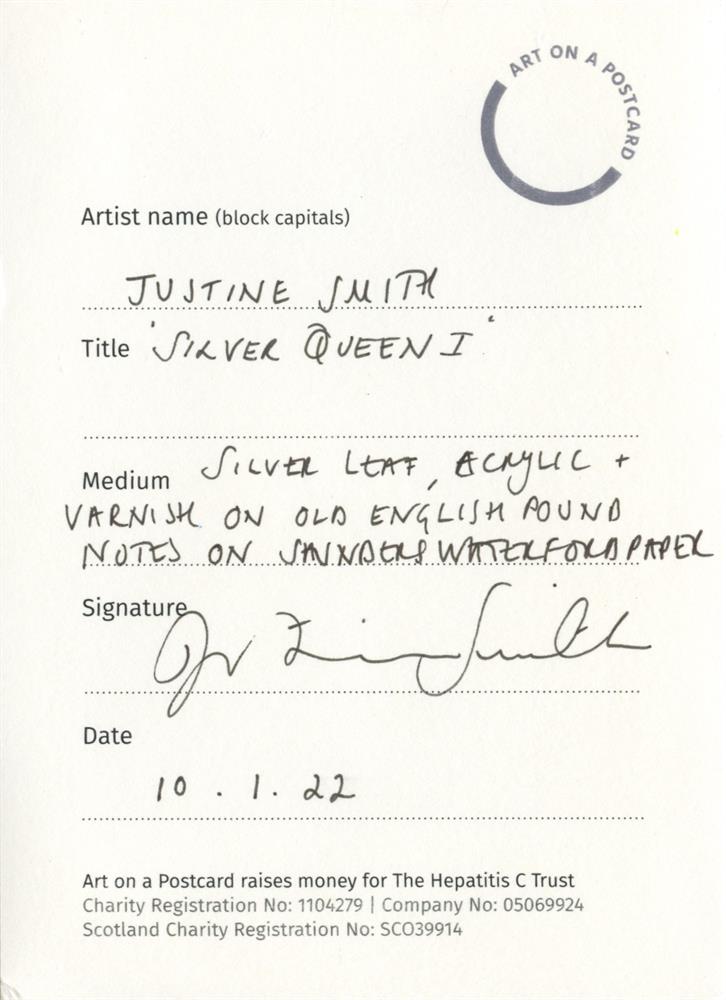 ART ON A POSTCARD
Artist name (block capitals)
JUSTINE SMITH
Title 'SILVER QUEEN I'
Medium SILVER LEAF, ACRYLIC +
VARNISH ON OLD ENGLISH POUND
NOTES ON SAUNDERS WATERFORD PAPER
Signature Justine Smith
Date
10 . 1 . 22
Art on a Postcard raises money for The Hepatitis C Trust
Charity Registration No: 1104279 | Company No: 05069924
Scotland Charity Registration No: SCO39914